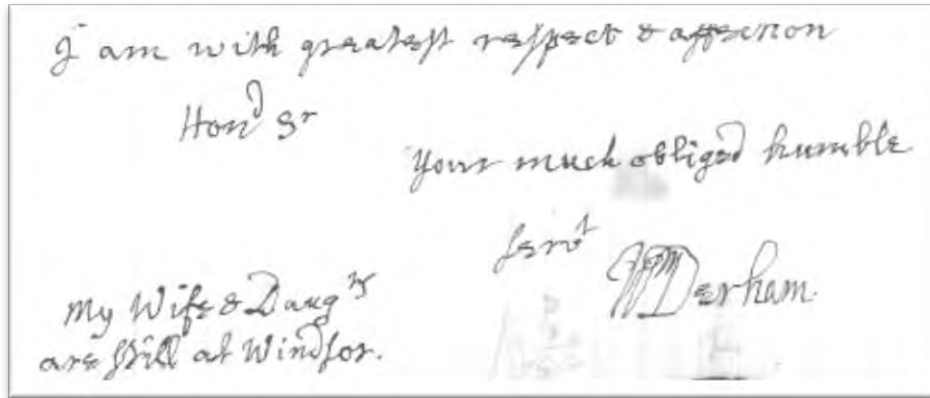 I am with greatest respect & affection
Hon^d S^r
Your much obliged humble
serv^t
W^m Derham.
My Wife & Daug^rs
are still at Windsor.